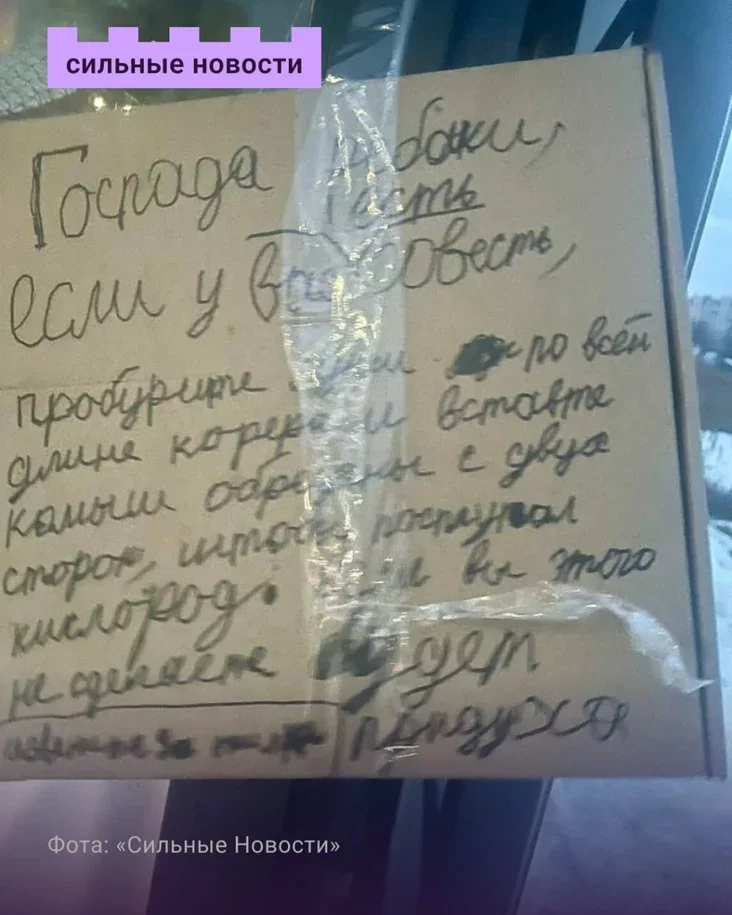 сильные новости
Господа рыбаки,
есть
если у вас совесть,
пробурите лунки по всей
длине корера и вставте
камыш обрезаны с двух
сторон, штобы поступал
кислород. Если вы этого
не сделаете будет
придуха
Фота: «Сильные Новости»